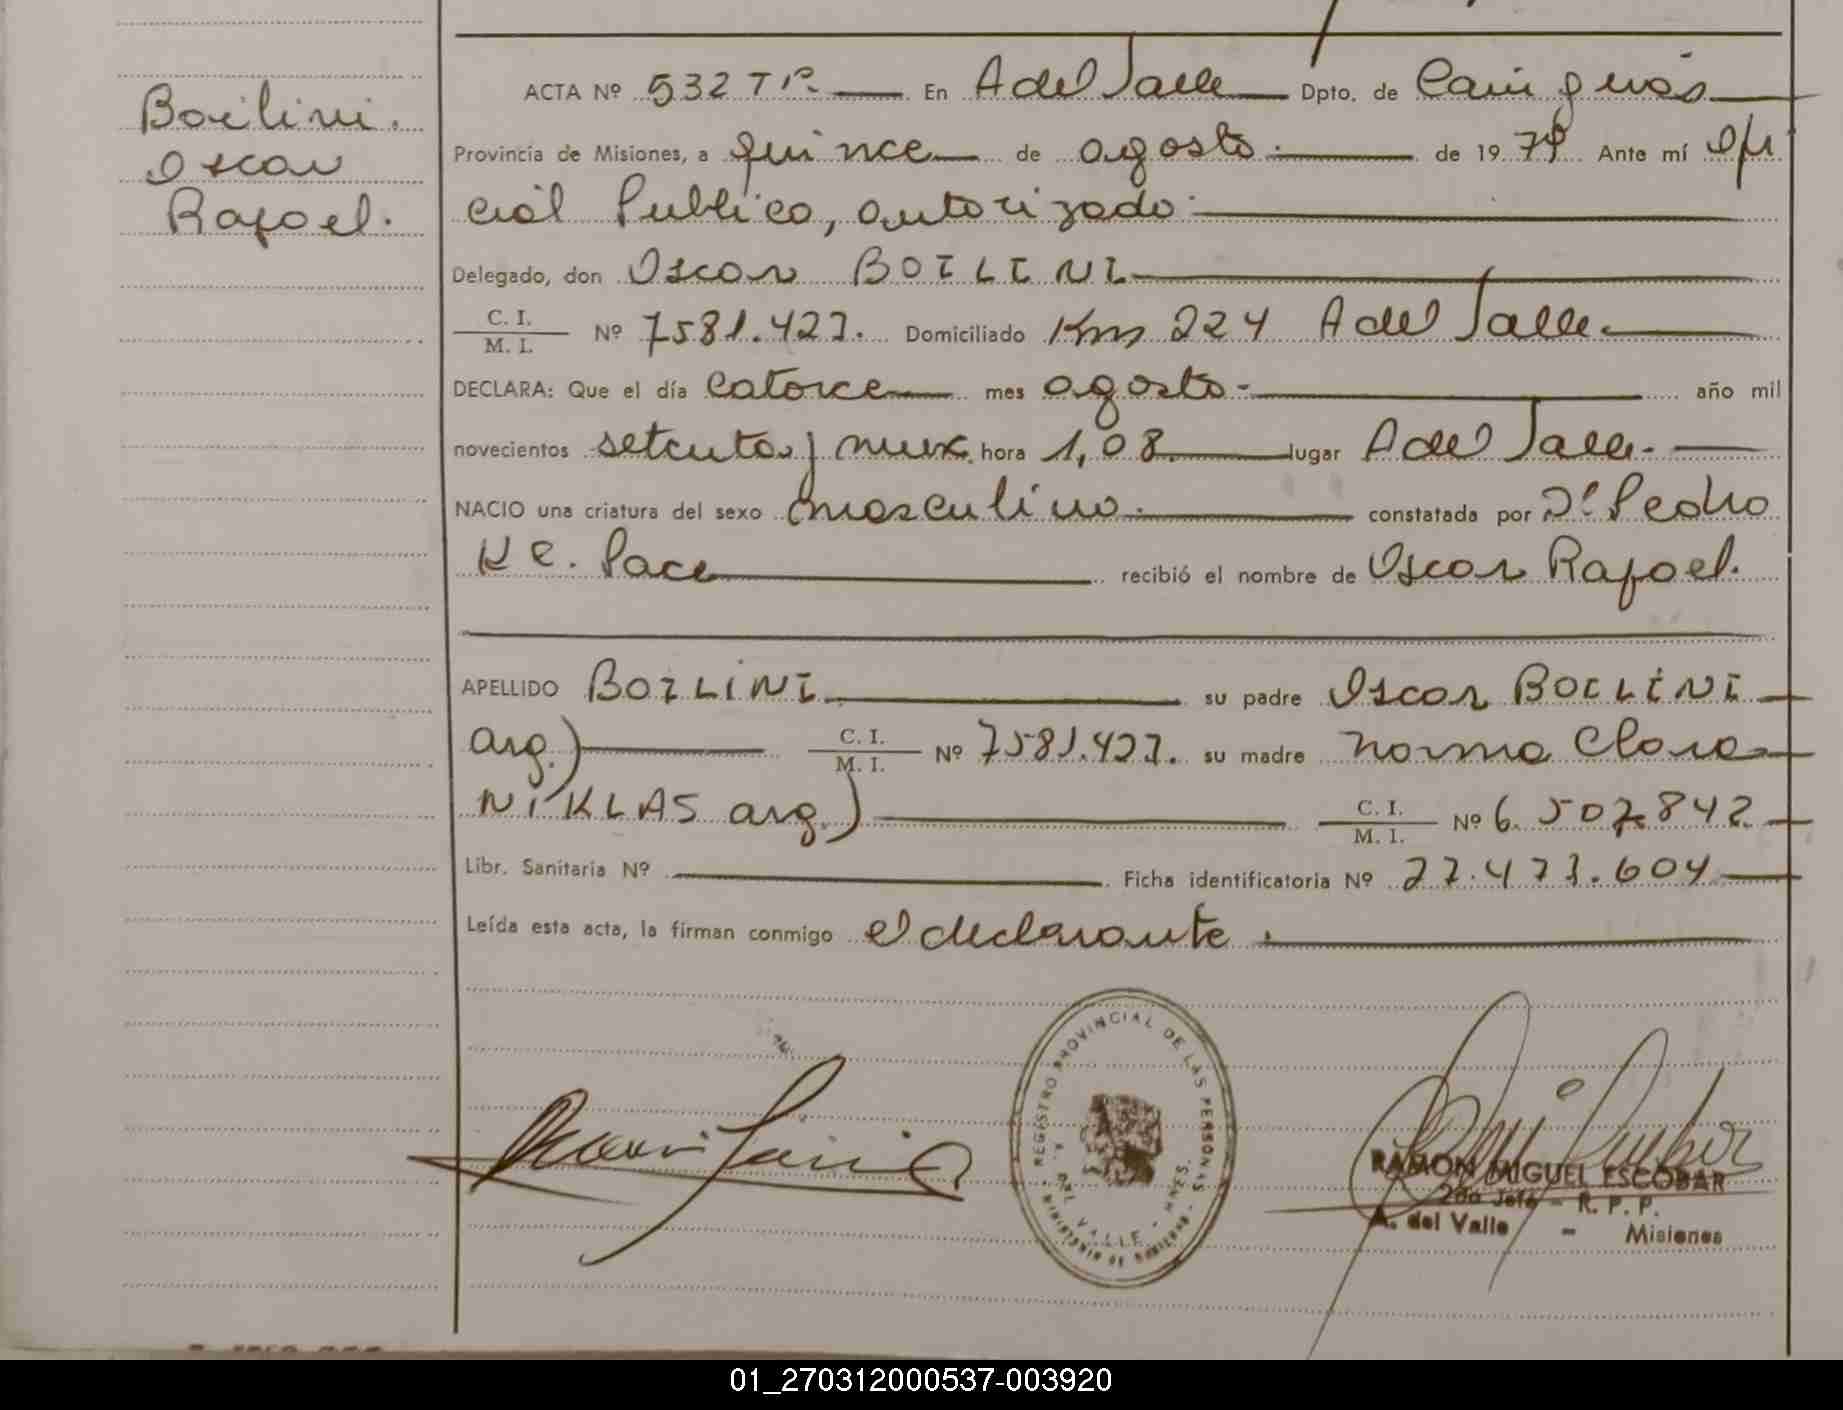 Boilini.
Oscar
Rafael.
ACTA Nº 532 Tº. En A del Valle Dpto. de Cainguás
Provincia de Misiones, a quince de agosto. de 19 79 Ante mí Ofi
cial Publico, autorizado.
Delegado, don Oscar BOILINI
C. I.
M. I. Nº 7581.427. Domiciliado Km 224 A del Valle.
DECLARA: Que el día catorce mes agosto. año mil
novecientos setenta y nueve hora 1,08. lugar A del Valle.
NACIO una criatura del sexo masculino. constatada por Dr Pedro
Pace recibió el nombre de Oscar Rafael.
APELLIDO BOILINI su padre Oscar BOILINI
arg.) C. I. M. I. Nº 7581.427. su madre Norma Clara
NIKLAS arg.) C. I. M. I. Nº 6.507.842
Libr. Sanitaria Nº Ficha identificatoria Nº 27.473.604
Leída esta acta, la firman conmigo el declarante.
REGISTRO PROVINCIAL DE LAS PERSONAS
A. DEL VALLE - MNES.
MINISTERIO DE GOBIERNO
RAMON MIGUEL ESCOBAR
2do Jefe - R. P. P.
A. del Valle - Misiones
01_270312000537-003920